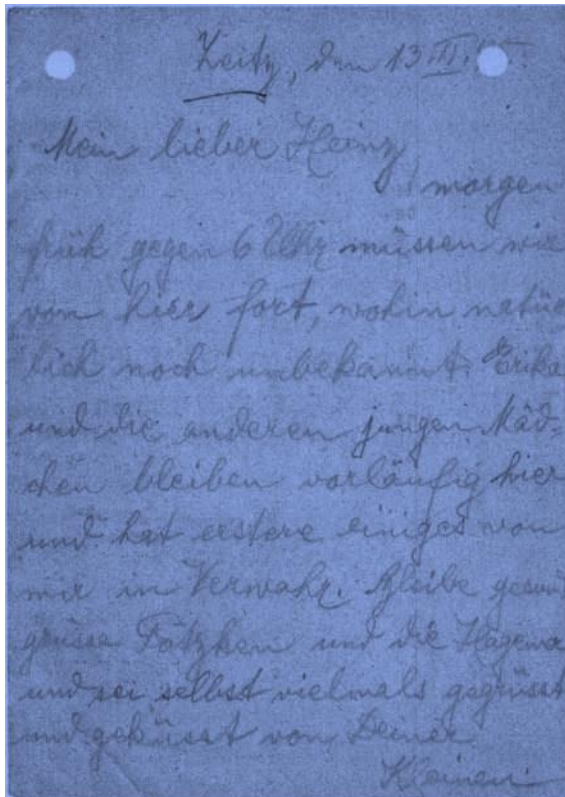 Zeitz, den 13. III.
Mein lieber Heinz,
morgen
früh gegen 6 Uhr müssen wir
von hier fort, wohin natür
lich noch unbekannt. Erika
und die anderen jungen Mäd-
chen bleiben vorläufig hier
und hat erstere einiges von
mir in Verwahr. Bleibe gesund
grüsse und die
und sei selbst vielmals gegrüsst
und geküsst von Deiner
Kleinen.